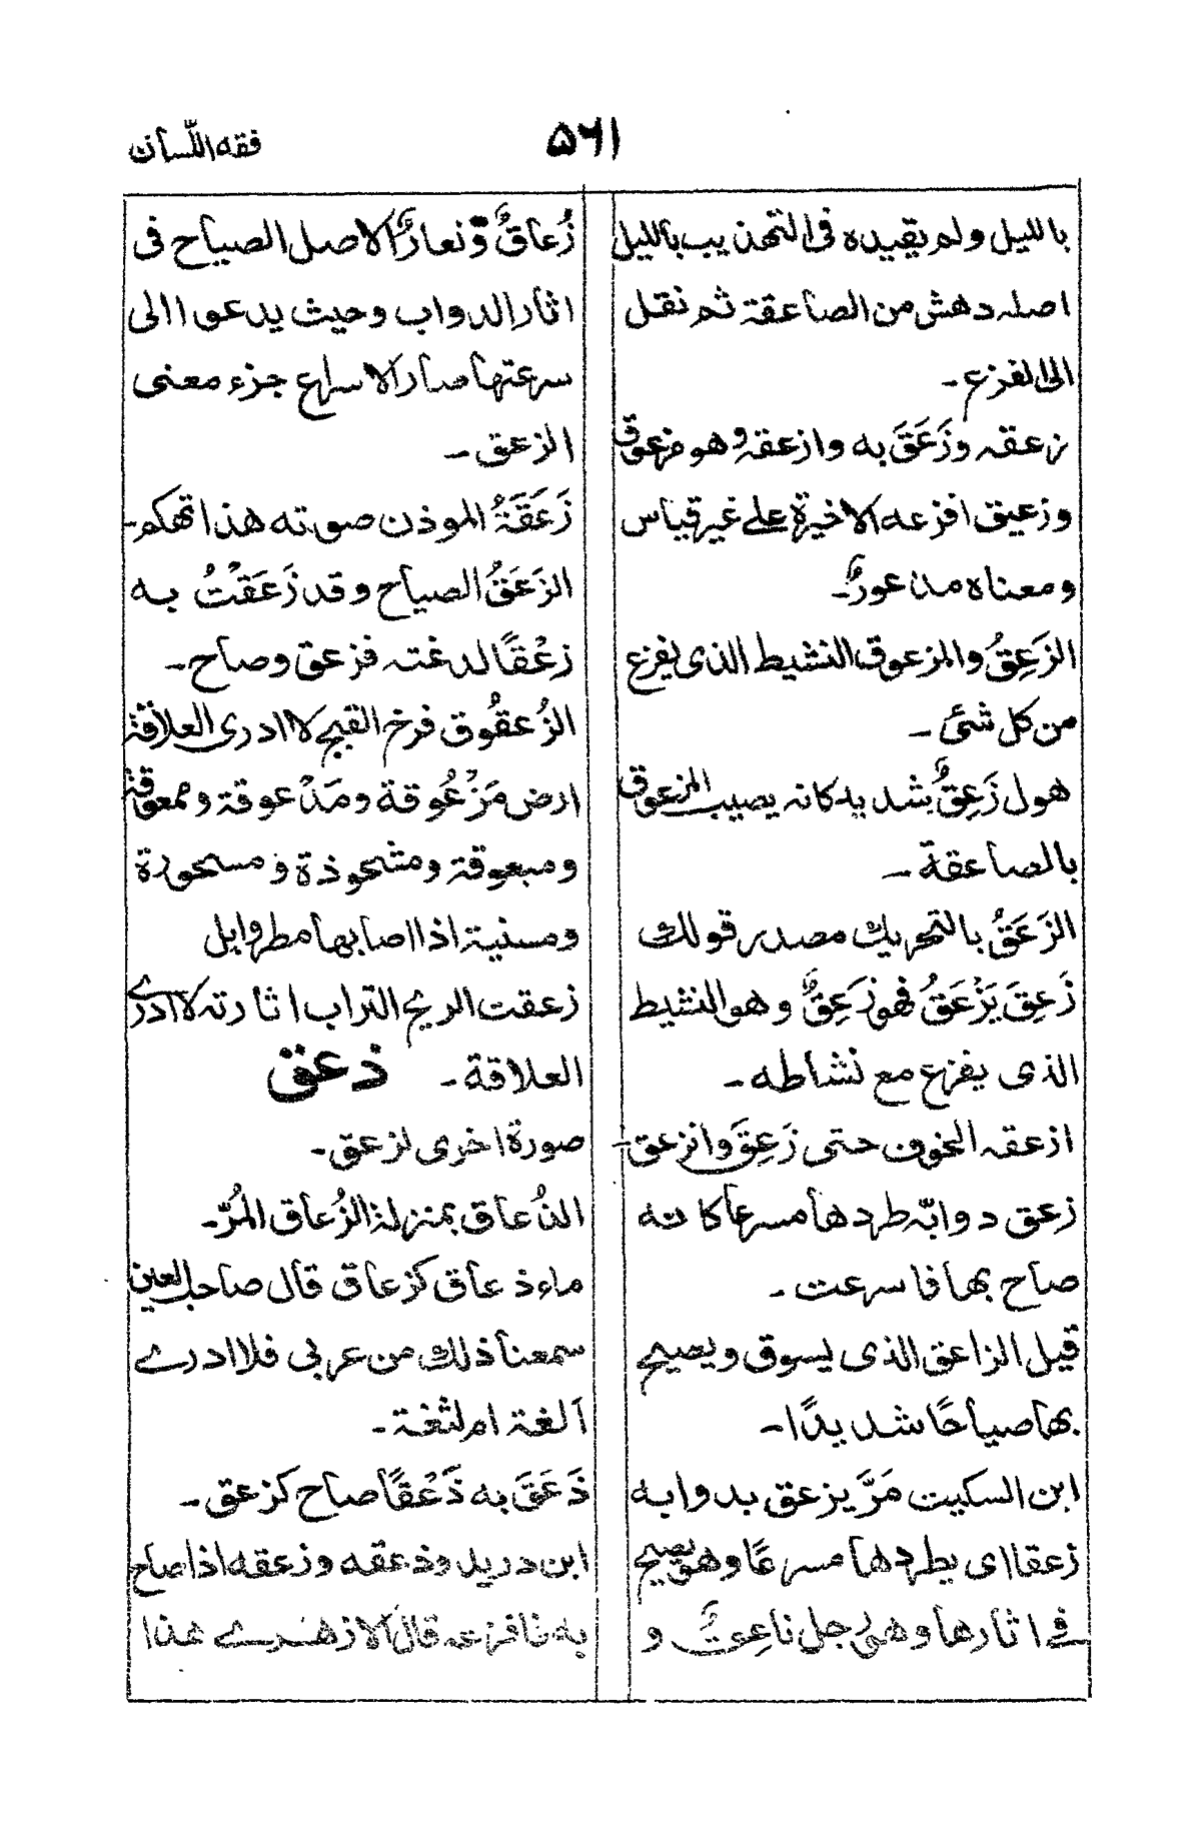 فقه اللّسان
۵۶۱
بالليل ولم يقيده فى التهذيب بالليل
اصله دهش من الصاعقة ثم نقل
الى الفزع ـ
زعقه وزَعَقَ به وازعقه وهو مزعوق
وزعيق افزعه الاخيرة على غير قياس
ومعناه مذعورٌ ـ
الزَعِقُ والمزعوق النشيط الذى يفزع
من كل شئ ـ
هول زَعِقٌ شديد كانه يصيب المزعوق
بالصاعقة ـ
الزَعَقُ بالتحريك مصدر قولك
زَعِقَ يَزْعَقُ فهو زَعِقٌ وهو النشيط
الذى يفزع مع نشاطه ـ
ازعقه الخوف حتى زَعِقَ وانزعق ـ
زعق دوابّه طردها مسرعا كانه
صاح بها فاسرعت ـ
قيل الزاعق الذى يسوق ويصيح
بها صياحًا شديدًا ـ
ابن السكيت مَرَّ يزعق بدوابه
زعقا اى يطردها مسرعًا وهو يصيح
فے اثارها وهو رجل ناعِقٌ و
زُعاقٌ ونعارٌ الاصل الصياح فى
اثار الدواب وحيث يدعوا الى
سرعتها صار الاسراع جزء معنى
الزعق ـ
زَعَقَةُ الموذن صوته هذا تهكم ـ
الزَعَقُ الصياح وقد زَعَقْتُ به
زعْقًا لدغته فزعق وصاح ـ
الزُعقُوق فرخ القبج لا ادرى العلاقة
ارض مَزْعُوقة ومَذْعوقة وممعوقة
ومبعوقة ومشحوذة ومسحورة
ومسنية اذا اصابها مطر وابل
زعقت الريح التراب اثارته لا ادرى
العلاقة ـ ذعق
صورة اخرى لزعق ـ
الذُعاق بمنزلة الزُعاق المُرّ ـ
ماء ذعاق كزعاق قال صاحب العين
سمعنا ذلك من عربى فلا ادرے
ألغة ام لثغة ـ
ذَعَقَ به ذَعْقًا صاح كزعق ـ
ابن دريد وذعقه وزعقه اذا صاح
به فافزعه قال الازهرے هذا